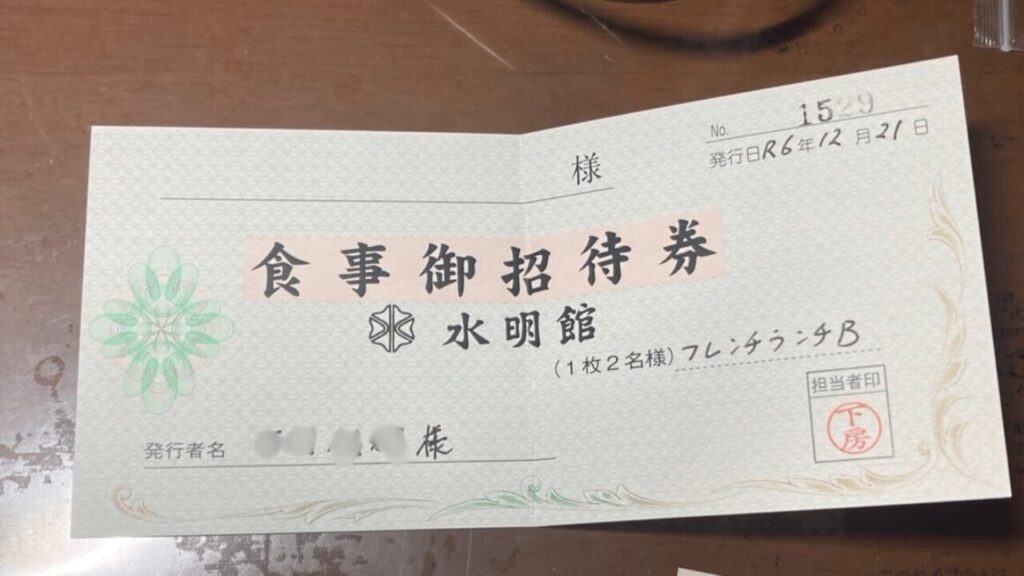 No. 1529
発行日R6年12月21日
様
食事御招待券
水明館
(1枚2名様)フレンチランチB
担当者印
下房
発行者名 様